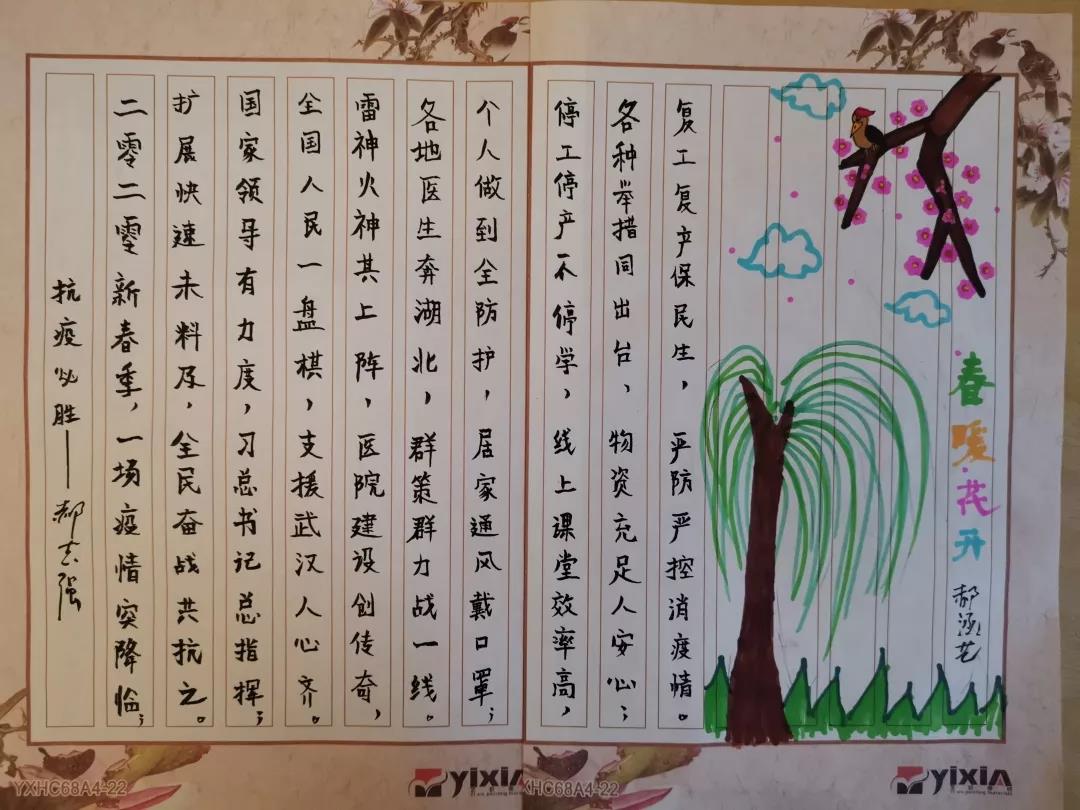 抗疫必胜——郝志强
二零二零新春季，一场疫情突降临；
扩展快速未料及，全民奋战共抗之。
国家领导有力度，习总书记总指挥；
全国人民一盘棋，支援武汉人心齐。
雷神火神其上阵，医院建设创传奇，
各地医生奔湖北，群策群力战一线。
个人做到全防护，居家通风戴口罩；
停工停产不停学，线上课堂效率高，
各种举措同出台、物资充足人安心；
复工复产保民生，严防严控消疫情。
春暖花开
郝涵艺
YXHC68A4-22
yixin
YXHC68A4-22
yixin